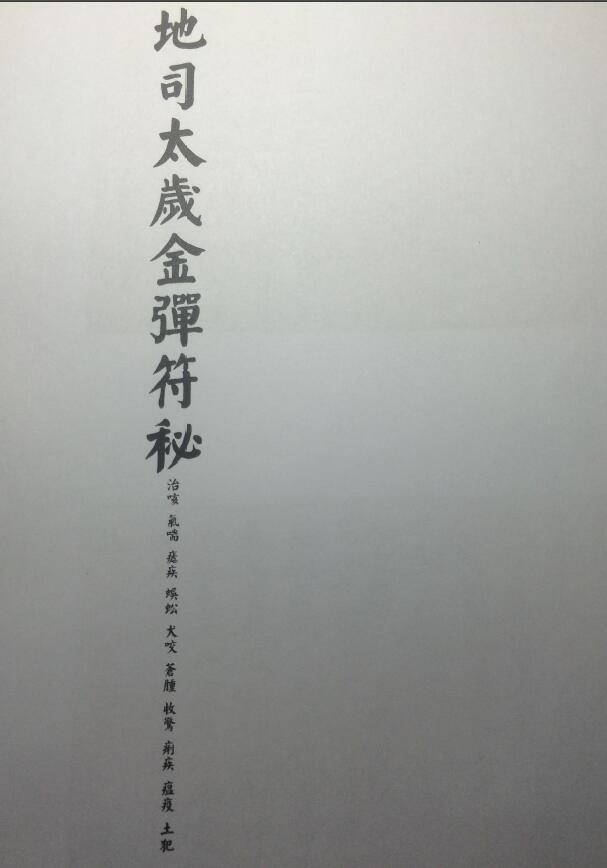 地司太歲金彈符秘
治咳 氣喘 瘧疾 蜈蚣 犬咬 蒼腫 收驚 痢疾 瘟疫 土犯